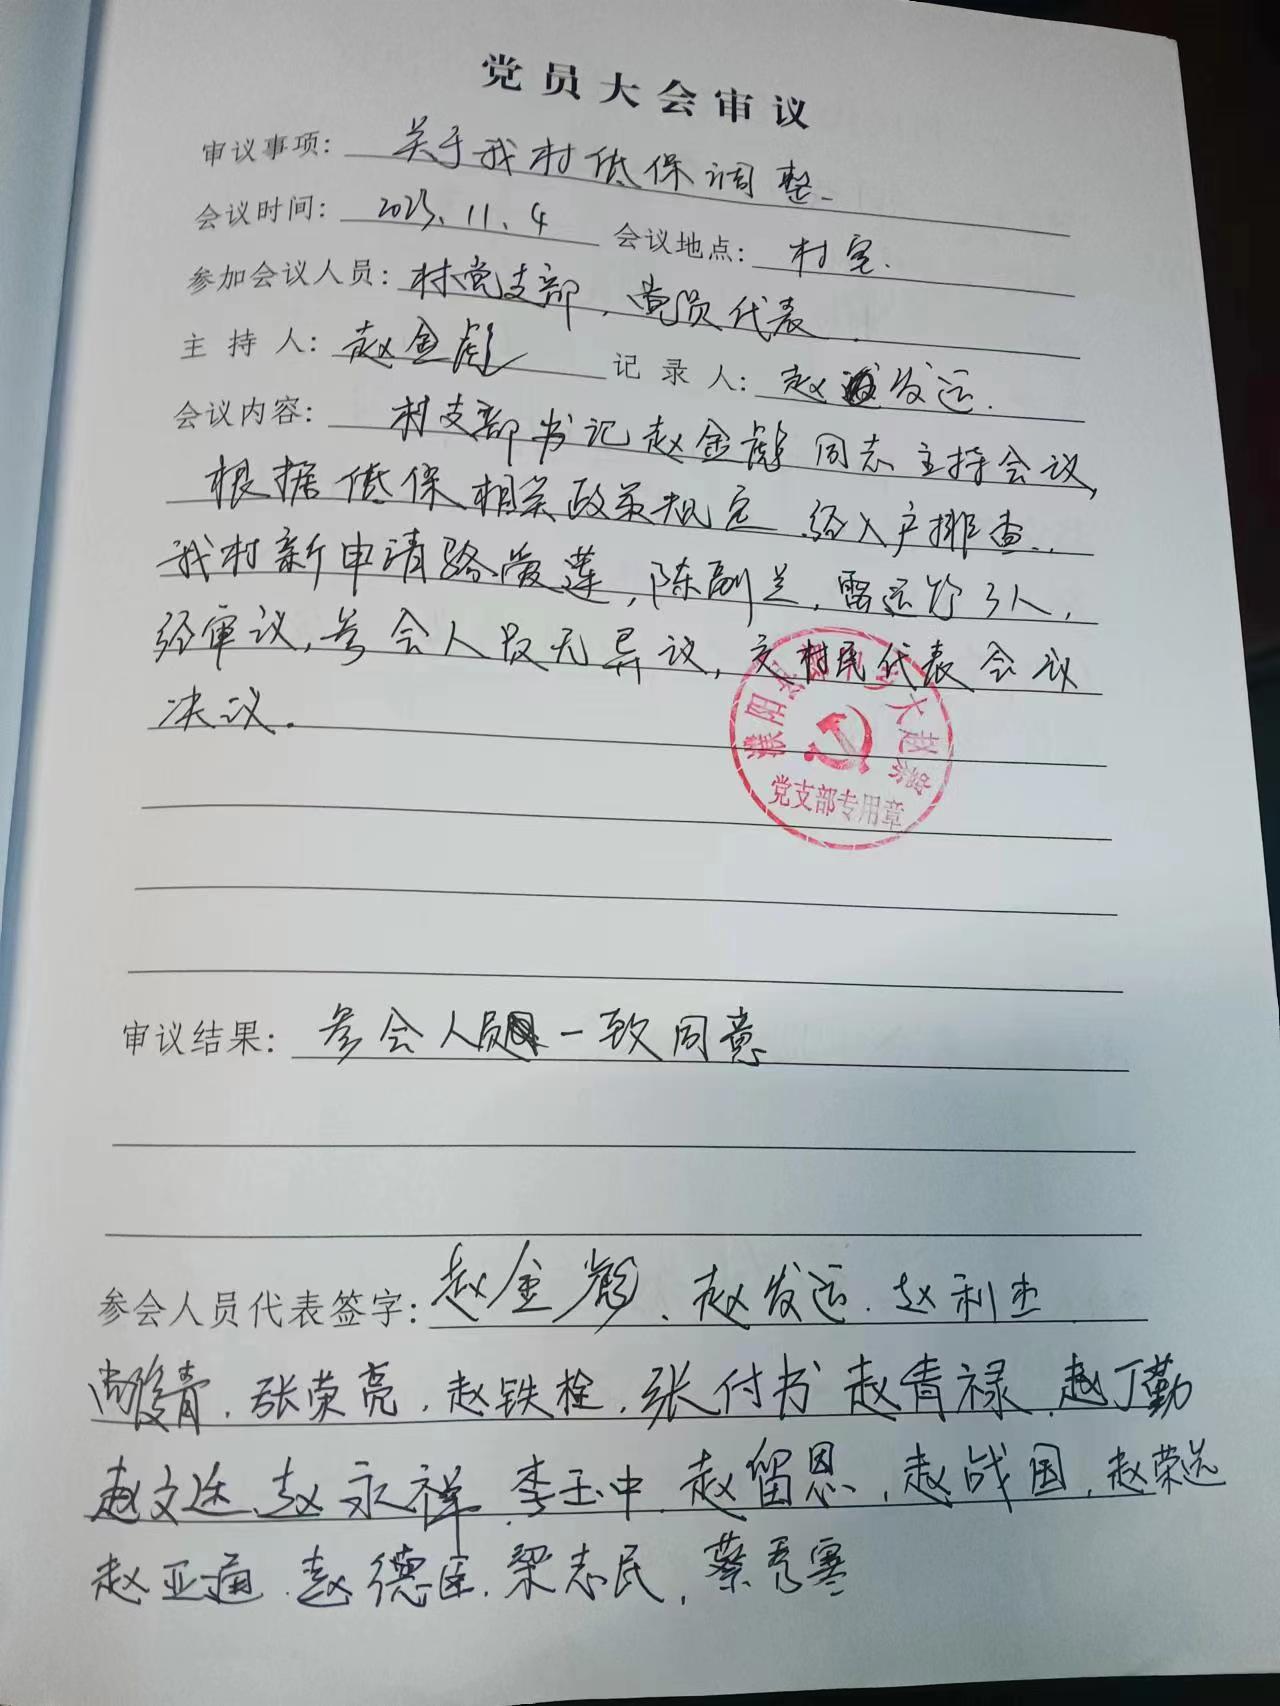 党员大会审议
审议事项：关于我村低保调整
会议时间：2023.11.4 会议地点：村室.
参加会议人员：村党支部，党员代表.
主持人：赵金彪 记录人：赵发运.
会议内容：村支部书记赵金彪同志主持会议，
根据低保相关政策规定，经入户排查，
我村新申请骆爱莲，陈副兰，雷运玲3人，
经审议，参会人员无异议，交村民代表会议
决议.
濮阳县 大赵
党支部专用章
审议结果：参会人员一致同意
参会人员代表签字：赵金彪、赵发运.赵利杰
尚俊青.张荣亮.赵铁栓.张付书 赵青禄.赵丁勤
赵文达.赵永祥.李玉中.赵留恩，赵战国，赵荣选
赵亚通.赵德臣.梁志民，蔡秀寒